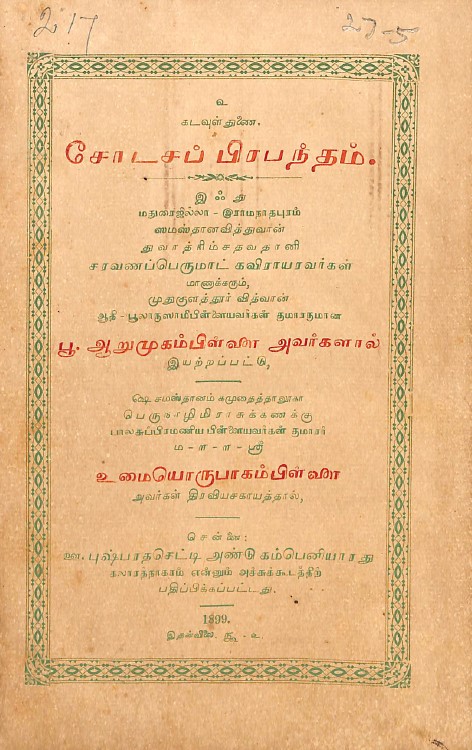 217 27-5
உ
கடவுள் துணை.
சோடசப் பிரபந்தம்.
இஃது
மதுரைஜில்லா - இராமநாதபுரம்
ஸமஸ்தானவித்துவான்
துவாத்ரிம்சதவதானி
சரவணப்பெருமாட் கவிராயரவர்கள்
மாணாக்கரும்,
முதுகுளத்தூர் வித்வான்
ஆதி - பூலாநுஸாமிபிள்ளையவர்கள் குமாரருமான
பூ. ஆறுமுகம்பிள்ளை அவர்களால்
இயற்றப்பட்டு,
ஷெ சமஸ்தானம் கமுதைத்தாலூகா
பெருநாழிமிராசுக்கணக்கு
பாலசுப்பிரமணிய பிள்ளையவர்கள் குமாரர்
ம - ள - ள - ஸ்ரீ
உமையொருபாகம்பிள்ளை
அவர்கள் திரவியசகாயத்தால்,
சென்னை:
ஊ. புஷ்பரதசெட்டி அண்டு கம்பெனியாரது
கலாரத்நாகரம் என்னும் அச்சுக்கூடத்திற்
பதிப்பிக்கப்பட்டது.
1899.
இதன்விலை. ரூ - உ.